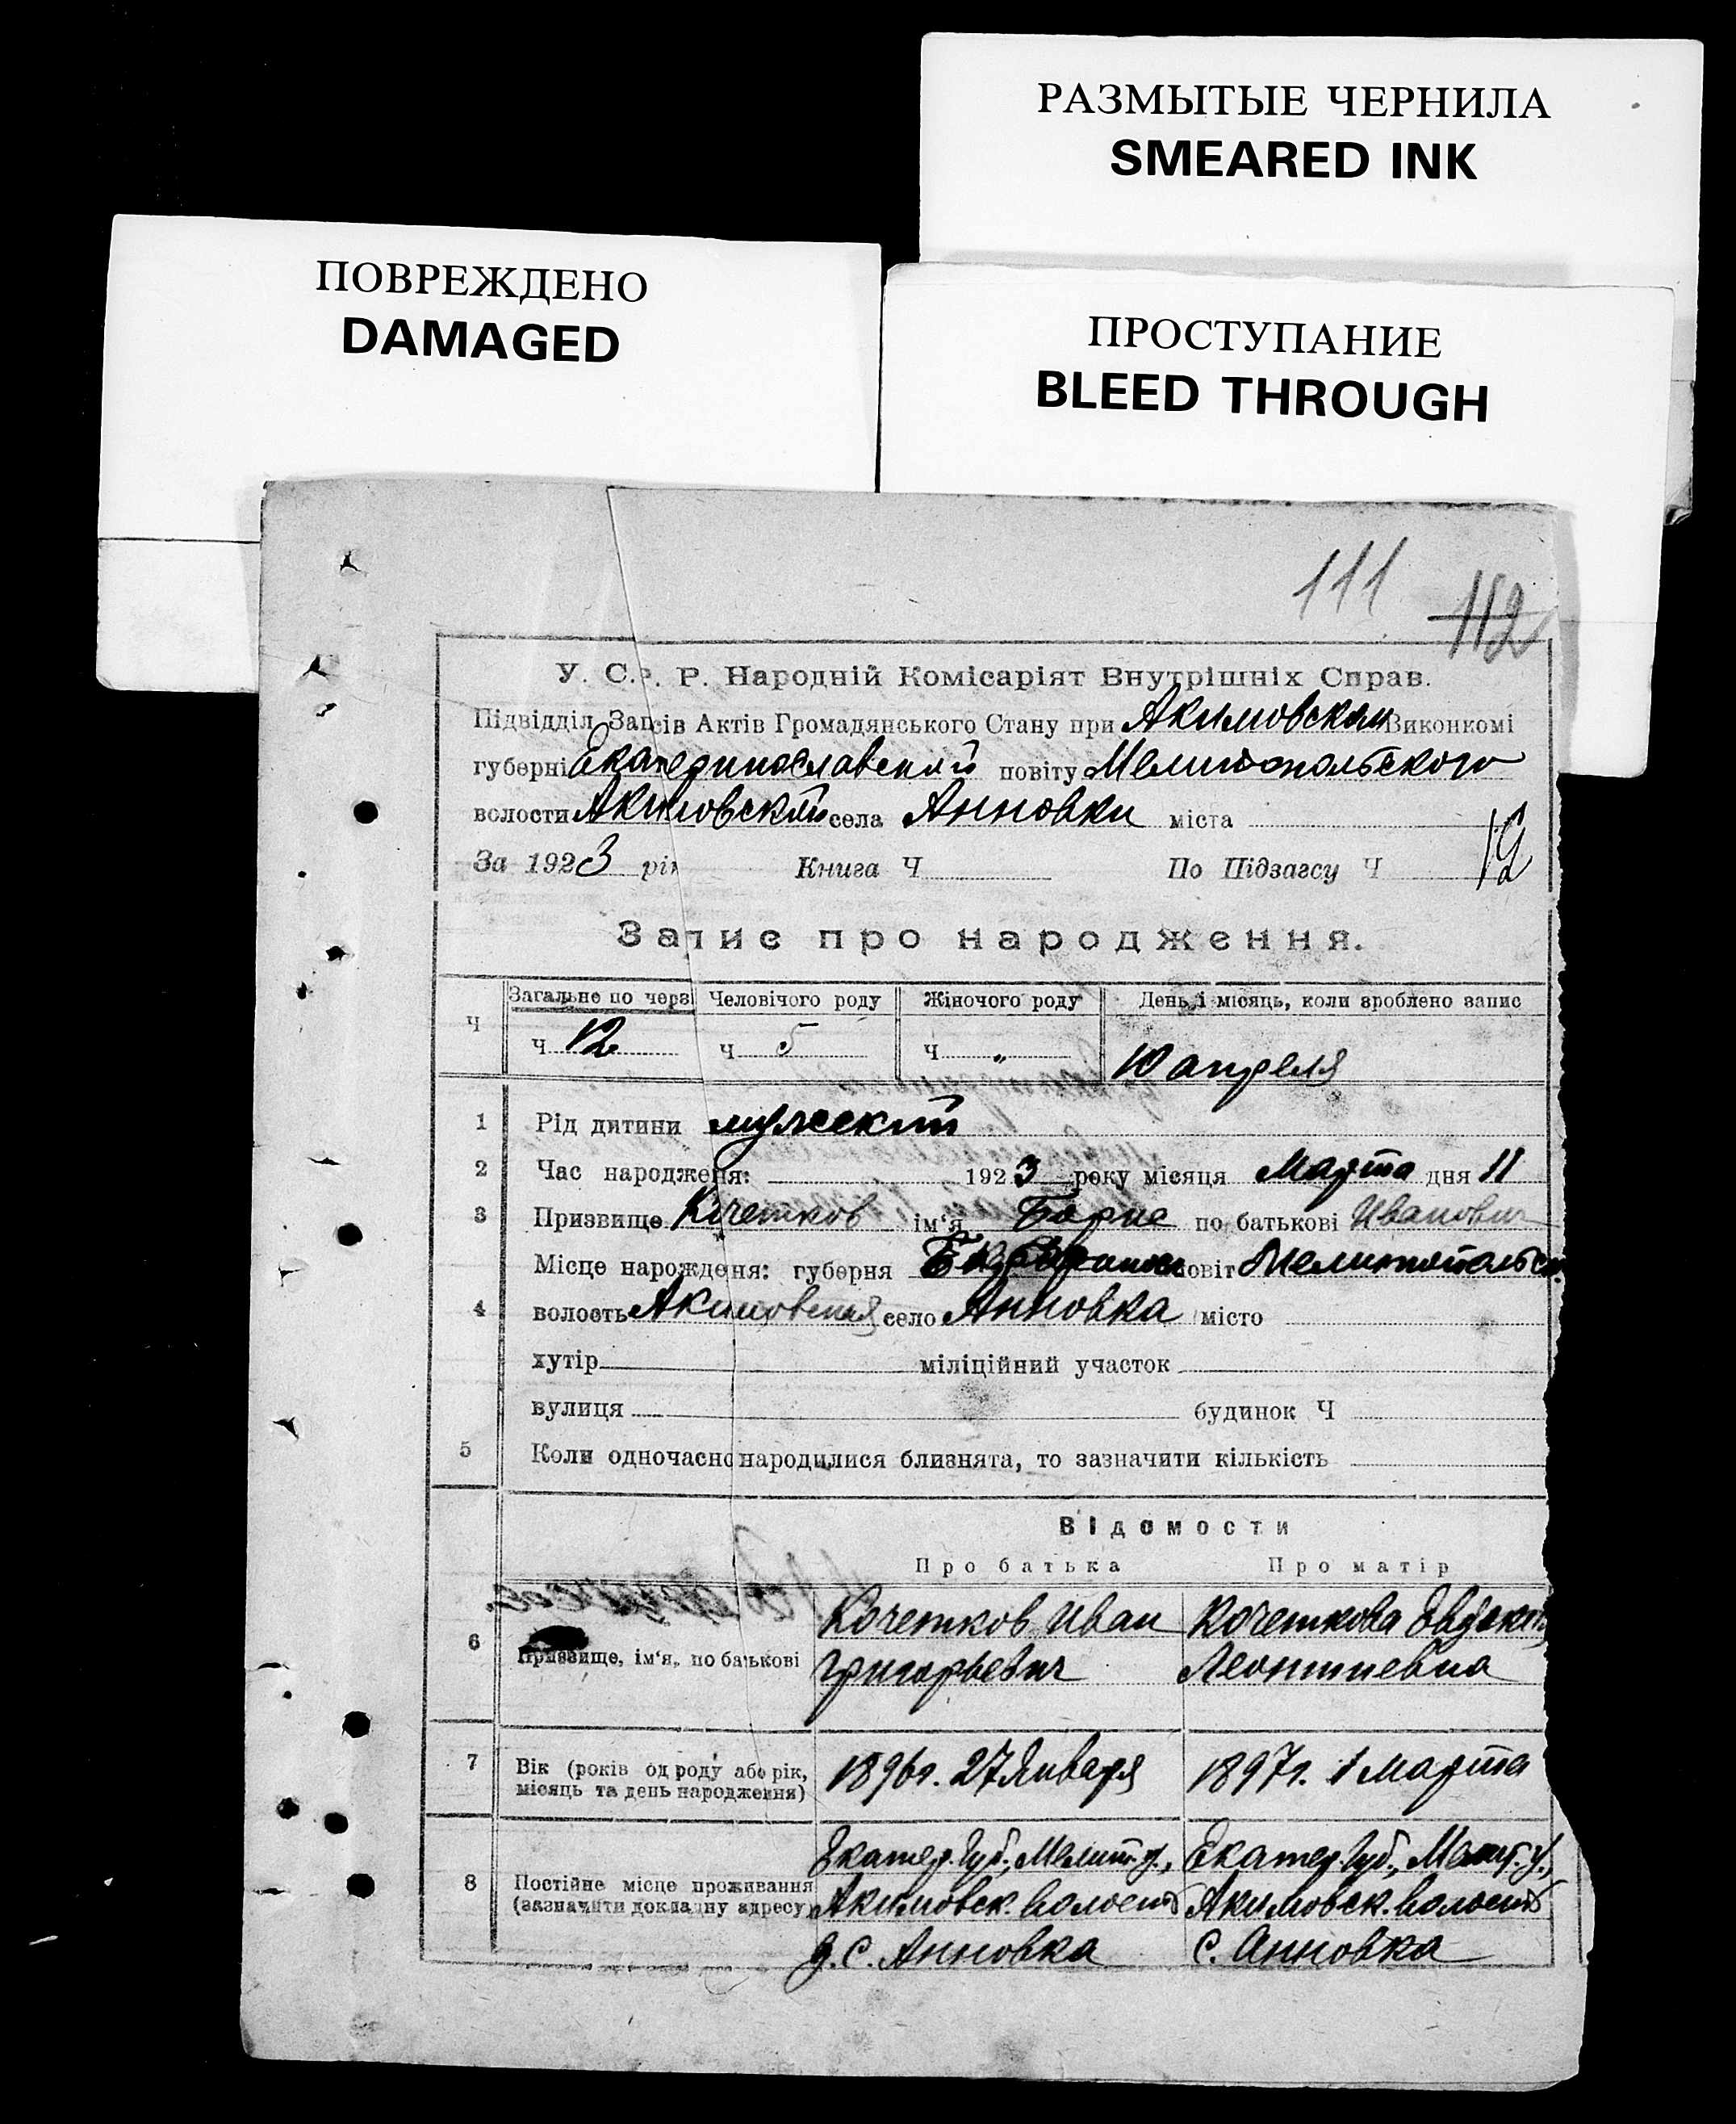 РАЗМЫТЫЕ ЧЕРНИЛА
SMEARED INK
ПОВРЕЖДЕНО
DAMAGED
ПРОСТУПАНИЕ
BLEED THROUGH
111 112
У. С. Р. Народній Комісаріят Внутрішніх Справ.
Підвідділ Запсів Актів Громадянського Стану при Акимовском Виконкомі
губерні Екатеринославской повіту Мелитопольского
волости Акимовской села Анновки міста
За 1923 рік Книга Ч По Підзагсу Ч 12
Запис про народження.
Ч Загальне по черзі Человічого роду Жіночого роду День і місяць, коли зроблено запис
Ч 12 Ч 5 Ч „ 10 апреля
1 Рід дитини мужский
2 Час народженя: 1923 року місяця Марта дня 11
3 Призвище Кочетков ім'я Борис по батькові Иванович
Місце нарожденя: губерня повіт Мелитопольск.
4 волость Акимовская село Анновка місто
хутір міліційний участок
вулиця будинок Ч
5 Коли одночасно народилися близнята, то зазначити кількість
Відомости
Про батька Про матір
6 Призвище, ім'я, по батькові Кочетков Иван Кочеткова Евдокия
Григорьевич Леонтиевна
7 Вік (років од роду або рік, місяць та день народження) 1896г. 27 Января 1897г. 1 Марта
8 Постійне місце проживання (зазначити докладну адресу) Екатер. Губ., Мелит. у., Екатер. Губ., Мелит. у.,
Акимовск. волость Акимовск. волость
с. Анновка с. Анновка